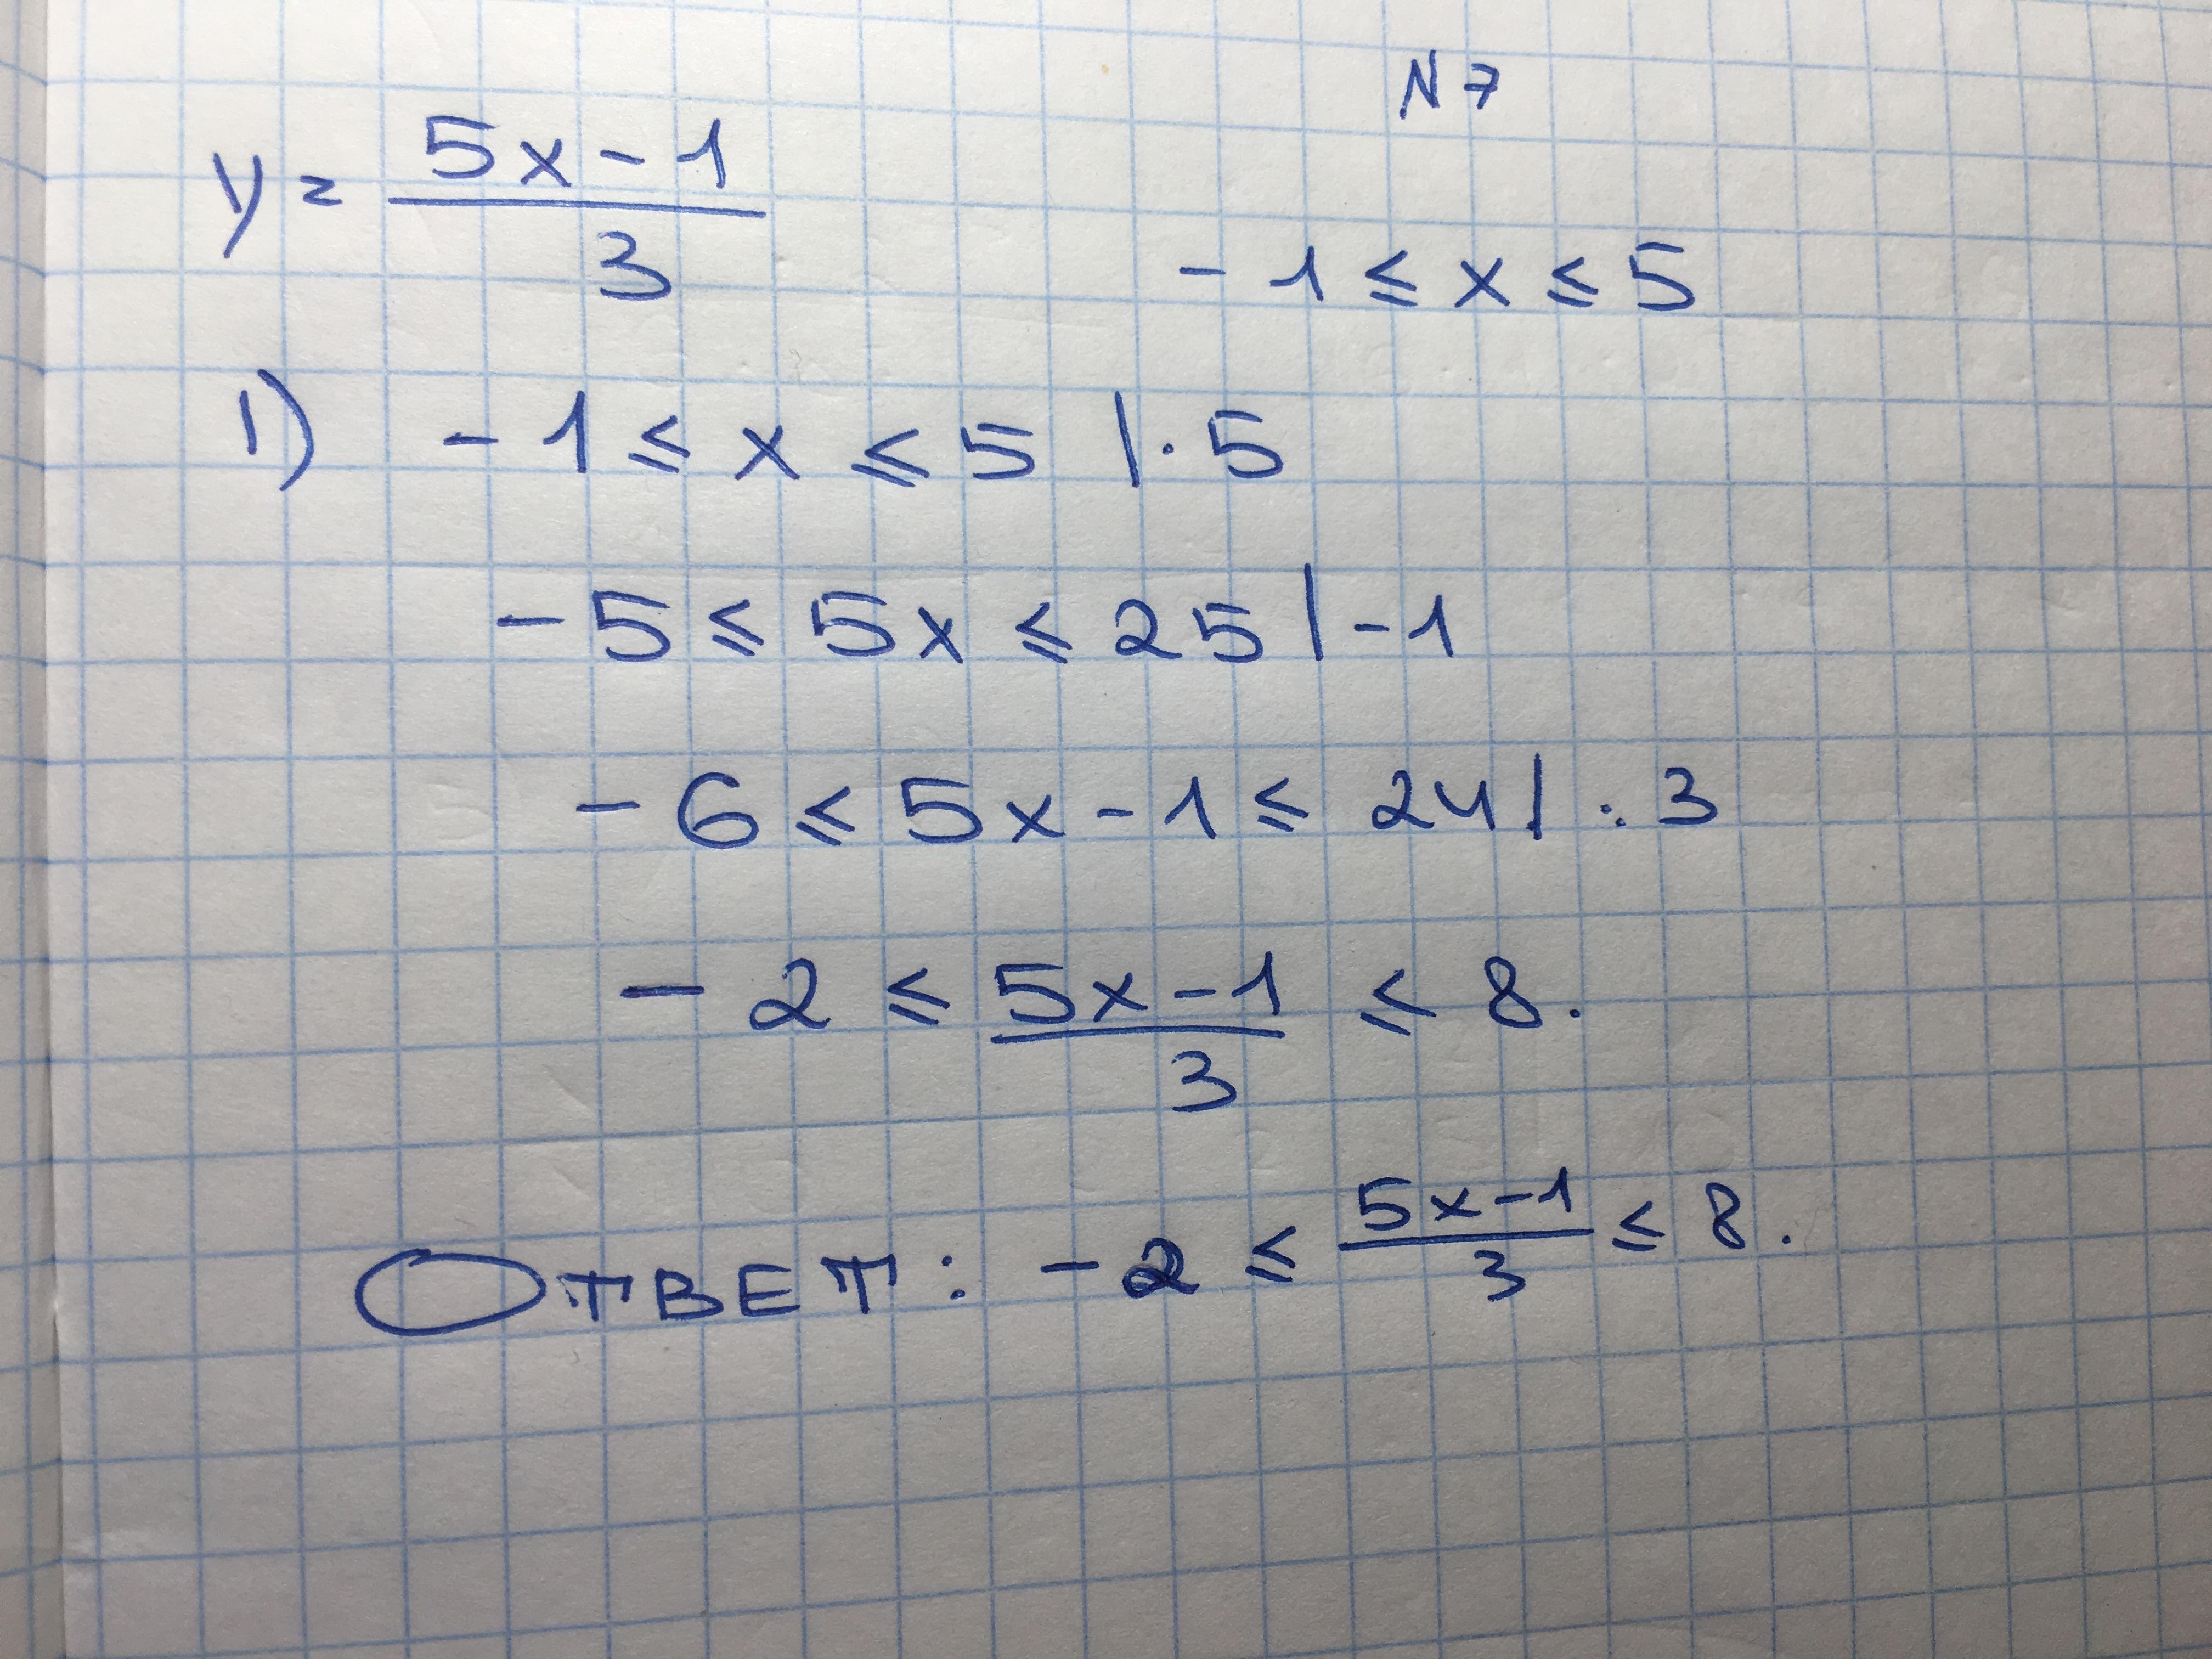 N 7
y = (5x - 1)/3
-1 ≤ x ≤ 5
1) -1 ≤ x ≤ 5 | · 5
-5 ≤ 5x ≤ 25 | -1
-6 ≤ 5x - 1 ≤ 24 | : 3
-2 ≤ (5x - 1)/3 ≤ 8.
ОТВЕТ: -2 ≤ (5x - 1)/3 ≤ 8.